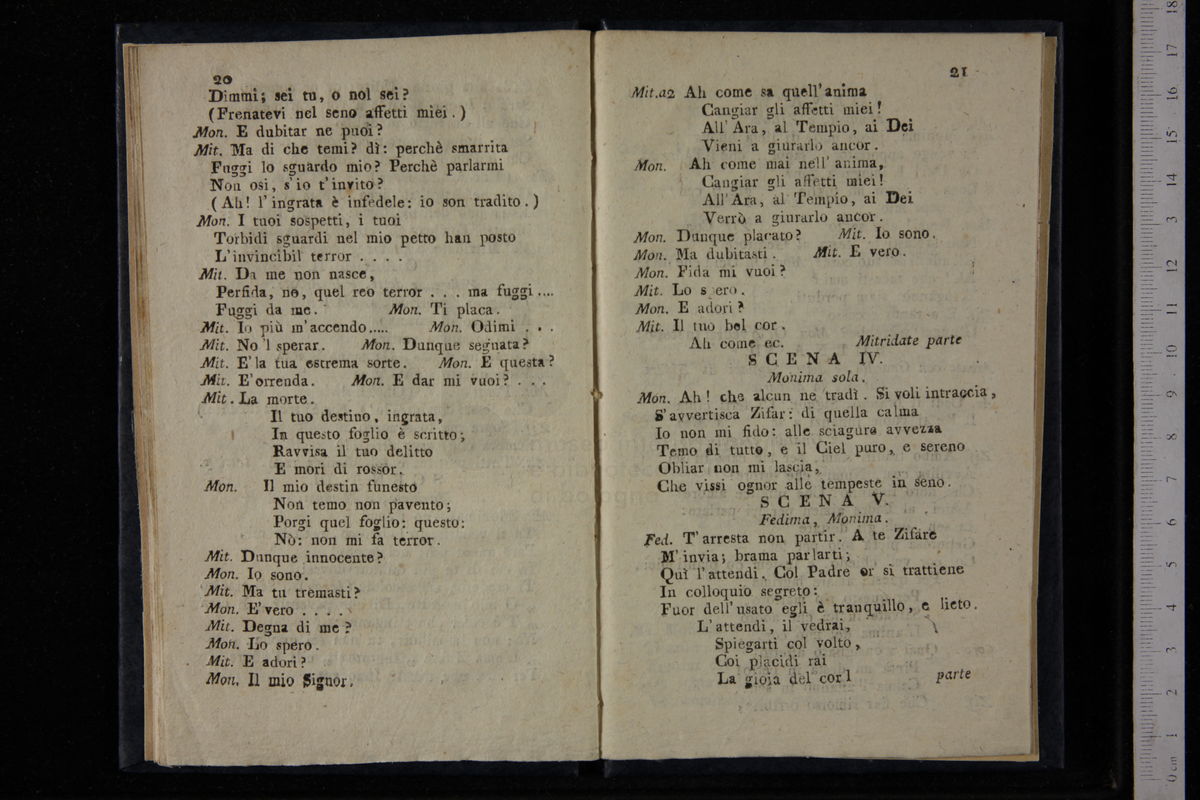 20
Dimmi; sei tu, o nol sei?
(Frenatevi nel seno affetti miei.)
Mon. E dubitar ne puoi?
Mit. Ma di che temi? dì: perchè smarrita
Fuggi lo sguardo mio? Perchè parlarmi
Non osi, s'io t'invito?
(Ah! l'ingrata è infedele: io son tradito.)
Mon. I tuoi sospetti, i tuoi
Torbidi sguardi nel mio petto han posto
L'invincibil terror . . . .
Mit. Da me non nasce,
Perfida, no, quel reo terror . . . ma fuggi ....
Fuggi da me. Mon. Ti placa.
Mit. Io più m'accendo ..... Mon. Odimi . . .
Mit. No'l sperar. Mon. Dunque segnata?
Mit. E'la tua estrema sorte. Mon. E questa?
Mit. E'orrenda. Mon. E dar mi vuoi? . . .
Mit. La morte.
Il tuo destino, ingrata,
In questo foglio è scritto;
Ravvisa il tuo delitto
E mori di rossor.
Mon. Il mio destin funesto
Non temo non pavento;
Porgi quel foglio: questo:
Nò: non mi fa terror.
Mit. Dunque innocente?
Mon. Io sono.
Mit. Ma tu tremasti?
Mon. E'vero . . . .
Mit. Degna di me?
Mon. Lo spero.
Mit. E adori?
Mon. Il mio Signor.
21
Mit.a2 Ah come sa quell'anima
Cangiar gli affetti miei!
All'Ara, al Tempio, ai Dei
Vieni a giurarlo ancor.
Mon. Ah come mai nell'anima,
Cangiar gli affetti miei!
All'Ara, al Tempio, ai Dei
Verrò a giurarlo ancor.
Mon. Dunque placato? Mit. Io sono.
Mon. Ma dubitasti. Mit. E vero.
Mon. Fida mi vuoi?
Mit. Lo spero.
Mon. E adori?
Mit. Il tuo bel cor.
Ah come ec. Mitridate parte
SCENA IV.
Monima sola.
Mon. Ah! che alcun ne tradì. Si voli intraccia,
S'avvertisca Zifar: di quella calma
Io non mi fido: alle sciagure avvezza
Temo di tutto, e il Ciel puro, e sereno
Obliar non mi lascia,
Che vissi ognor alle tempeste in seno.
SCENA V.
Fedima, Monima.
Fed. T'arresta non partir. A te Zifare
M'invia; brama parlarti;
Quì l'attendi. Col Padre or si trattiene
In colloquio segreto:
Fuor dell'usato egli è tranquillo, e lieto.
L'attendi, il vedrai,
Spiegarti col volto,
Coi placidi rai
La gioia del cor l parte
0 cm 1 2 3 4 5 6 7 8 9 10 11 12 3 14 15 16 17 18